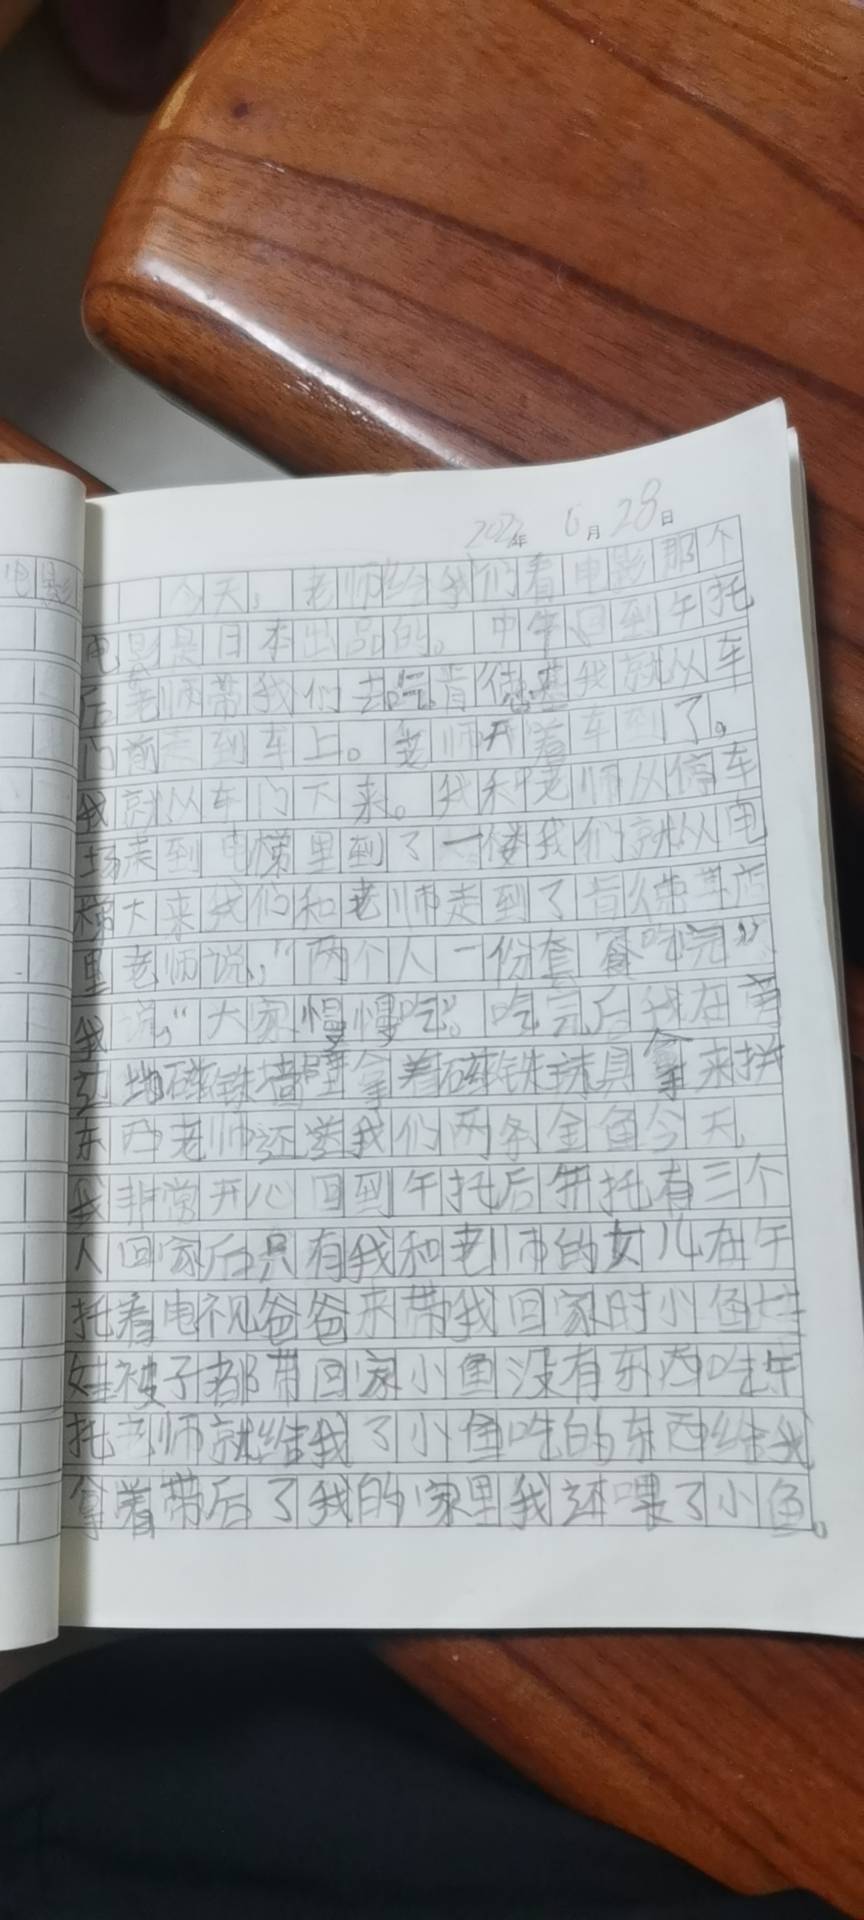 电影
2022年 6月28日
今天,老师给我们看电影那个
电影是日本出品的。中午回到午托
后老师带我们去吃肯德基我就从车
门前走到车上。老师开着车到了。
我就从车门下来。我和老师从停车
场走到电梯里到了一楼我们就从电
梯大来我们和老师走到了肯德基店
里老师说,"两个人一份套餐吃完"
我说,"大家慢慢吃"。吃完后我在
地磁铁墙壁拿着磁铁 具拿来拼
东西老师还送我们两条金鱼今天,
我非常开心回到午托后午托有三个
人回家后只有我和老师的女儿在午
托看电视爸爸来带我回家时小鱼
被子都带回家小鱼没有东西吃午
托老师就给我了小鱼吃的东西给我
拿着带后了我的家里我还喂了小鱼。